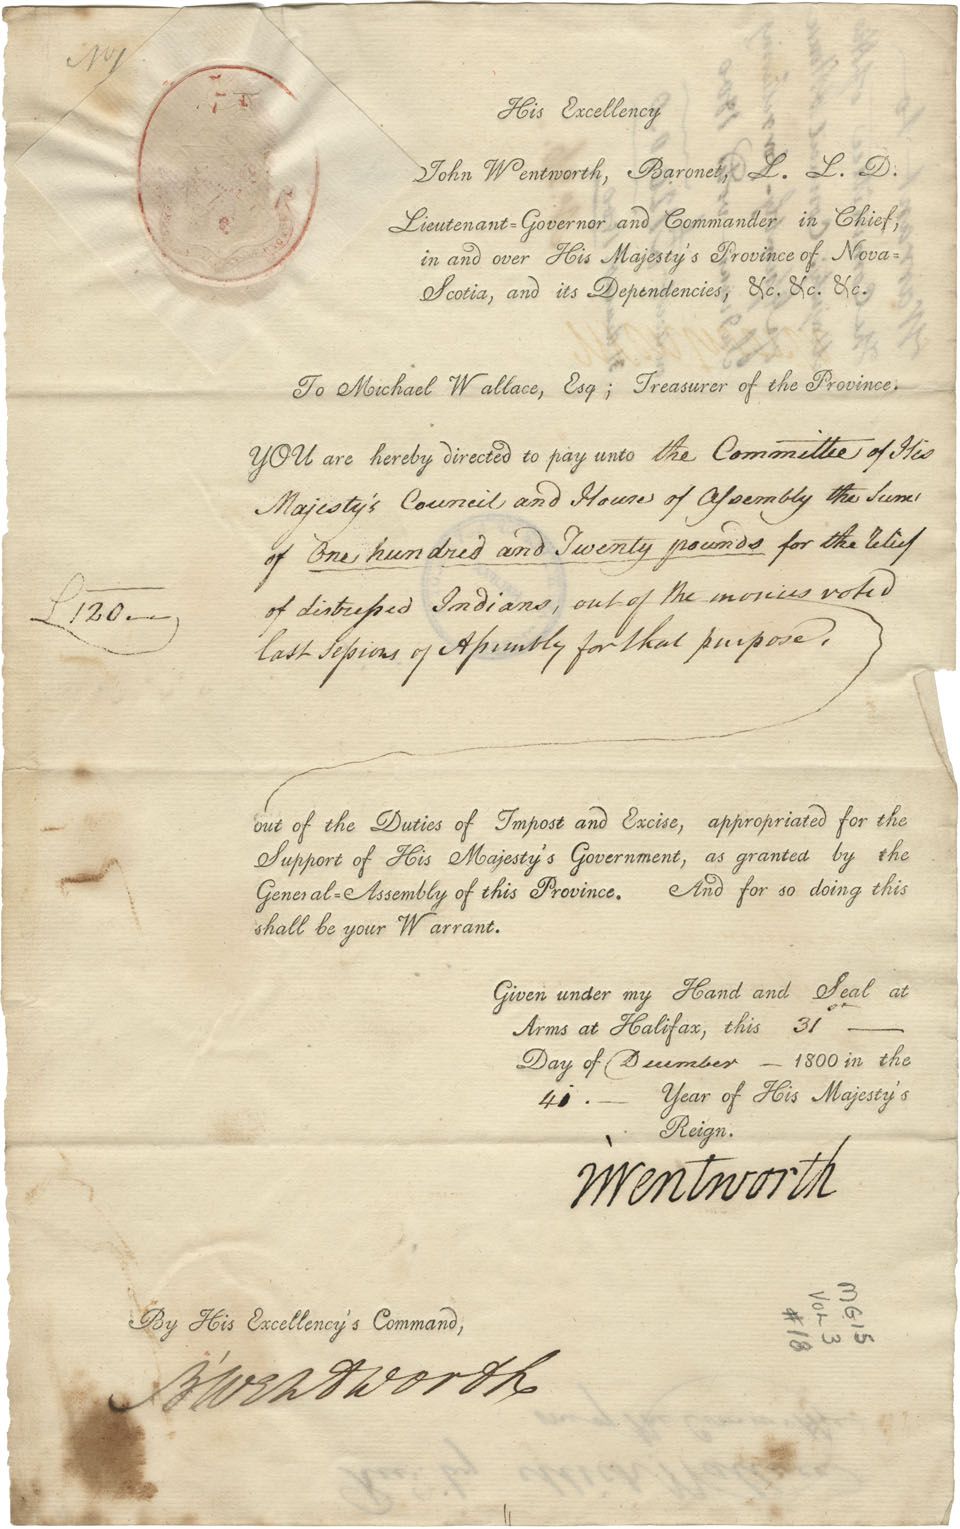 No 1
His Excellency
John Wentworth, Baronet, L. L. D.
Lieutenant=Governor and Commander in Chief,
in and over His Majesty's Province of Nova=
Scotia, and its Dependencies, &c. &c. &c.
To Michael Wallace, Esq; Treasurer of the Province.
YOU are hereby directed to pay unto the Committee of His
Majesty's Council and House of Assembly the Sum
of One hundred and Twenty pounds for the relief
£120.—
of distressed Indians, out of the monies voted
last Sessions of Assembly for that purpose.
out of the Duties of Impost and Excise, appropriated for the
Support of His Majesty's Government, as granted by the
General=Assembly of this Province. And for so doing this
shall be your Warrant.
Given under my Hand and Seal at
Arms at Halifax, this 31st —
Day of December — 1800 in the
41. — Year of His Majesty's
Reign.
J Wentworth
By His Excellency's Command,
B Wentworth
MG15
VOL 3
#18